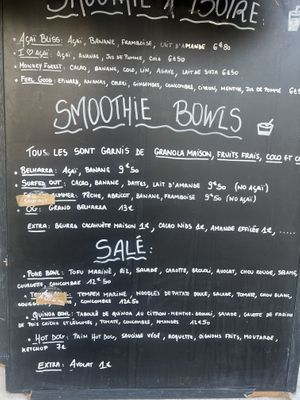 SMOOTHIE À BOIRE:
- AÇAI BLISS: AÇAI, BANANE, FRAMBOISE, LAIT D'AMANDE 6€80
- I ♡ AÇAI: AÇAI, ANANAS, JUS DE POMME, CHIA 6€50
- MONKEY FOREST: CACAO, BANANE, COCO, LIN, AGAVE, LAIT DE SOJA 6€50
- FEEL GOOD: EPINARD, ANANAS, CÉLERI, GINGEMBRE, CONCOMBRE, CITRON, MENTHE, JUS DE POMME
SMOOTHIE BOWLS
TOUS LES SONT GARNIS DE GRANOLA MAISON, FRUITS FRAIS, COCO ET
- BELHARRA: AÇAI, BANANE 9€50
- SURFED OUT: CACAO, BANANE, DATTES, LAIT D'AMANDE 9€50 (NO AÇAI)
SUMMER: PÊCHE, ABRICOT, BANANE, FRAMBOISE 9€50 (NO AÇAI)
- OG: GRAND BELHARRA 13€
EXTRA: BEURRE CACAHUÈTE MAISON 1€, CACAO NIBS 1€, AMANDE EFFILÉE 1€, .....
SALÉ:
- POKE BOWL: TOFU MARINÉ, RIZ, SALADE, CAROTTE, BROCOLI, AVOCAT, CHOU ROUGE, SÉSAME,
COURGETTE, CONCOMBRE 12€50
TEMPEH MARINÉ, NOODLES DE PATATE DOUCE, SALADE, TOMATE, CHOU BLANC,
CONCOMBRE 12€50
- QUINOA BOWL: TABOULÉ DE QUINOA AU CITRON-MENTHE, BROCOLI, SALADE, GALETTE DE FARINE
DE POIS CHICHE ET LÉGUMES, TOMATE, CONCOMBRE, AMANDES 12€50
- HOT DOG: PAIN HOT DOG, SAUCISSE VÉGÉ, ROQUETTE, OIGNONS FRITS, MOUTARDE,
KETCHUP 7€
EXTRA: AVOCAT 1€